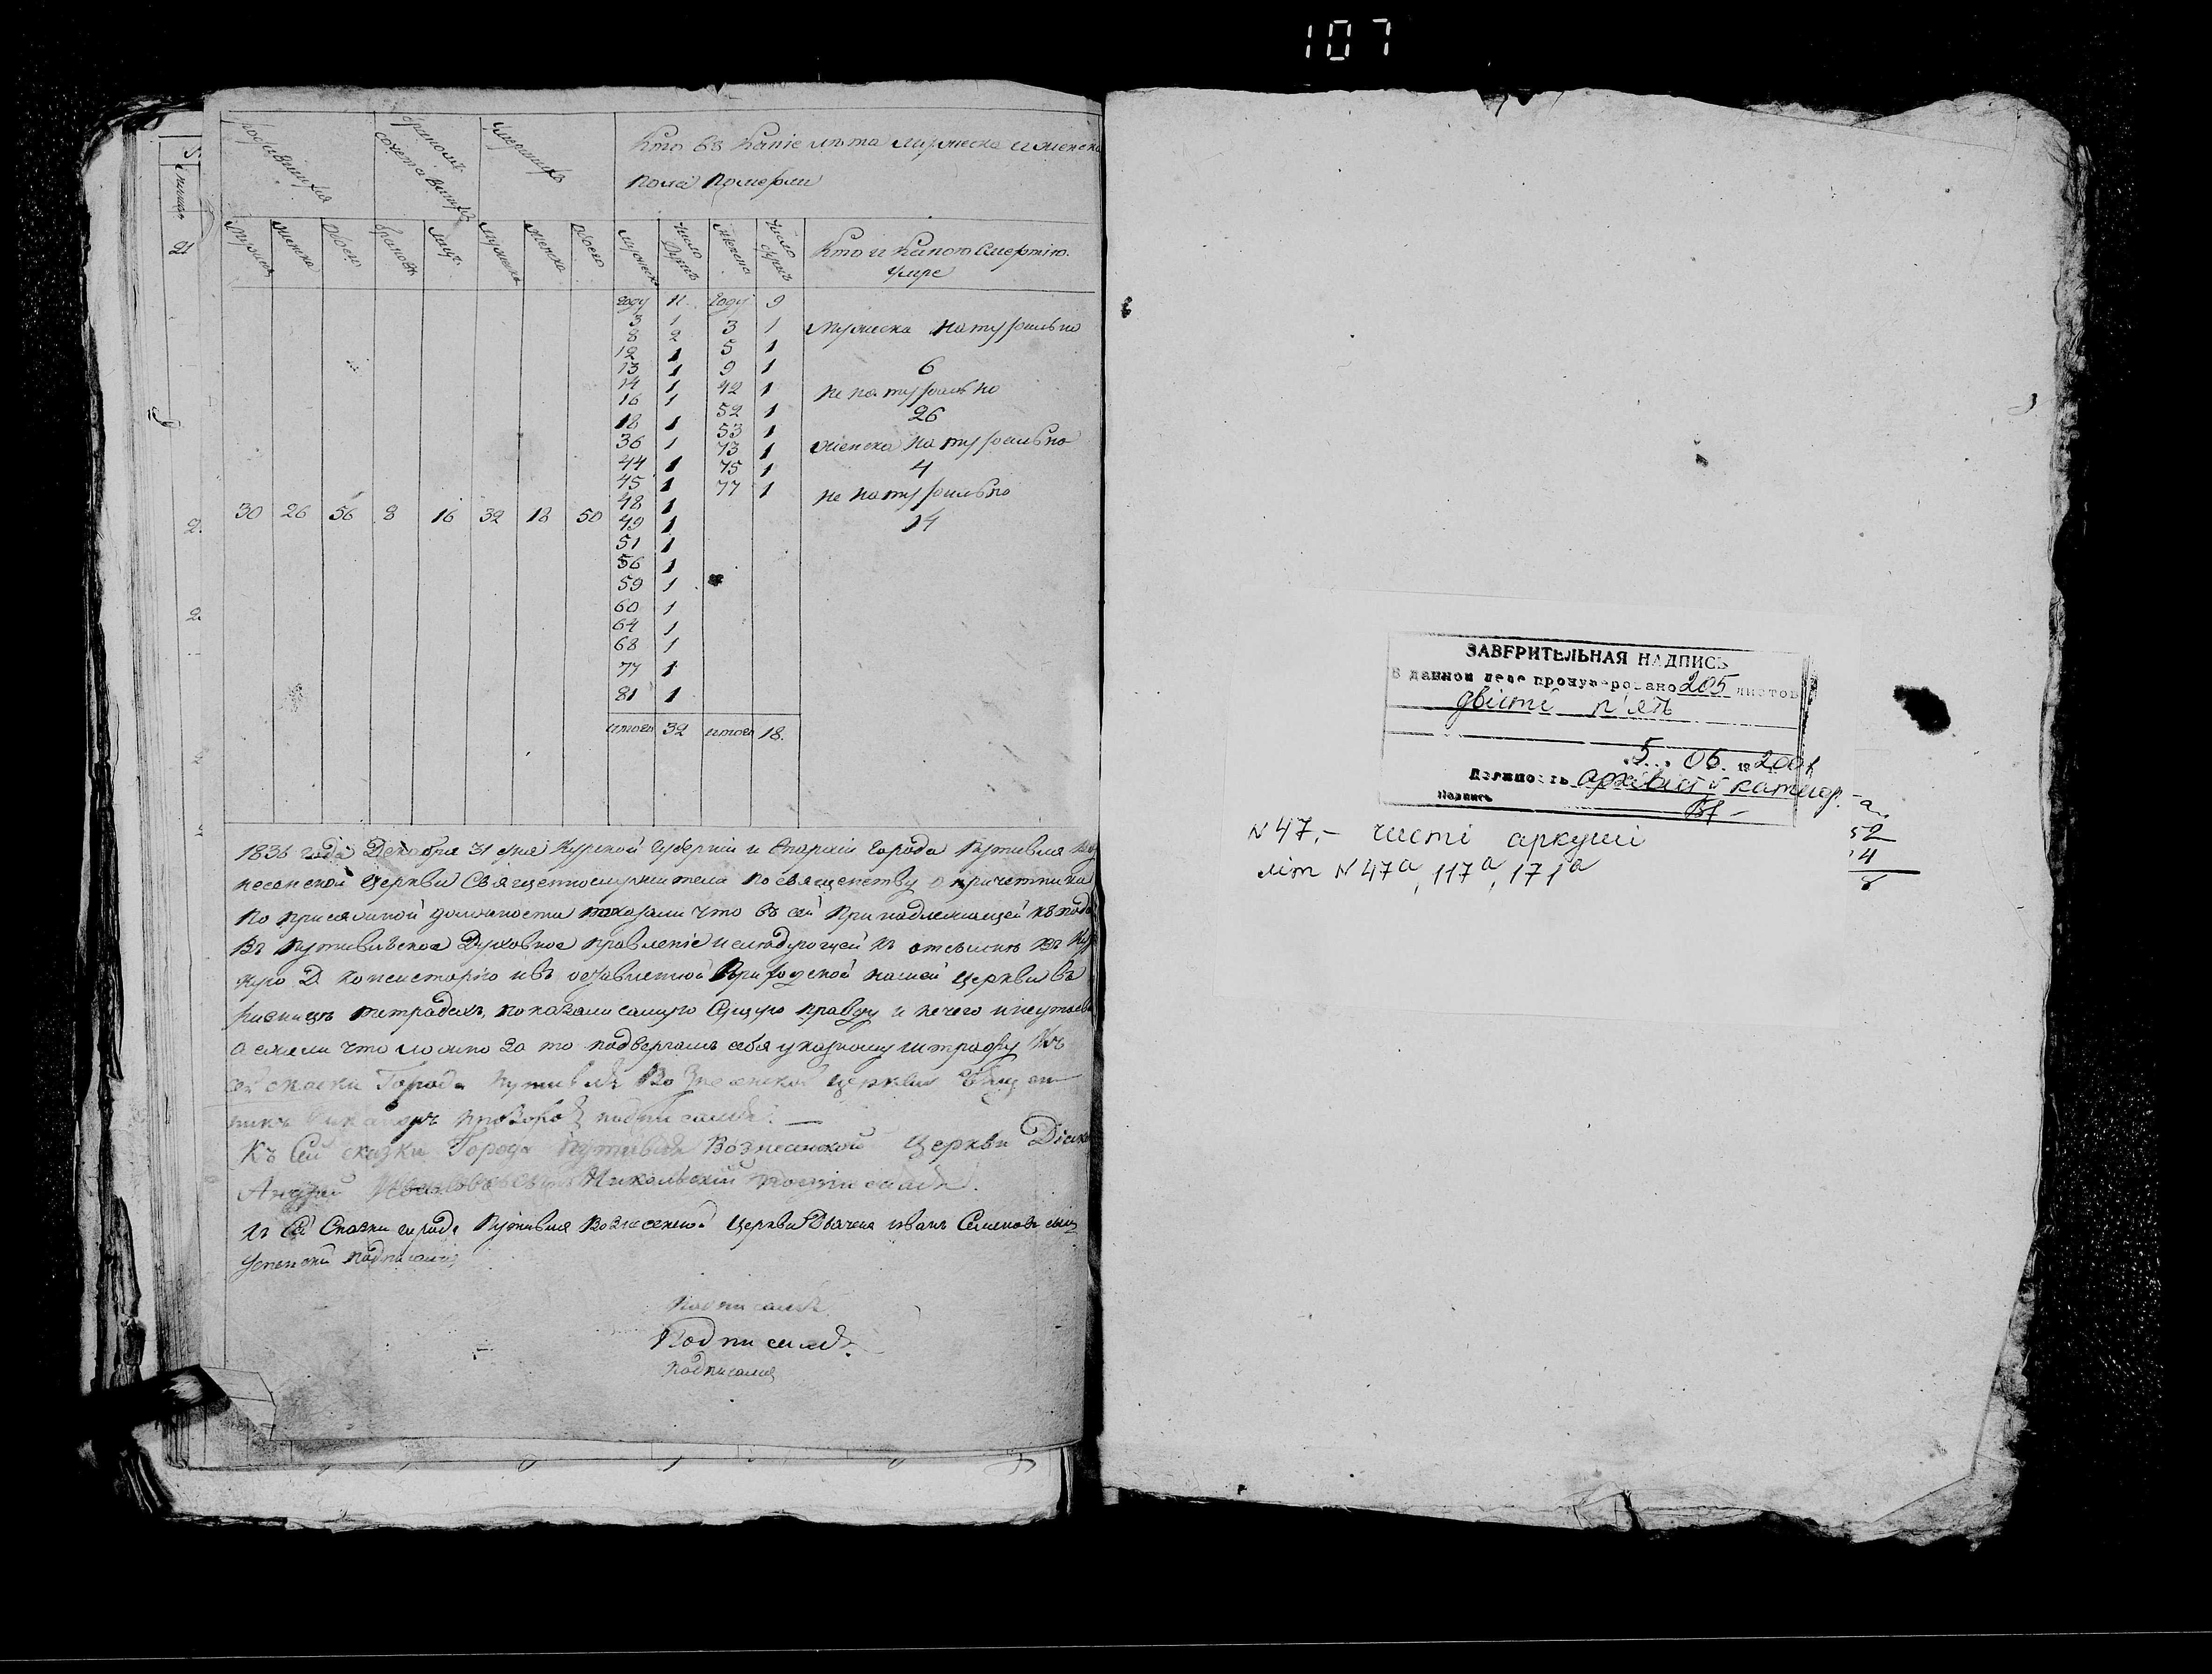 107
родившихся
бракомъ сочетавшихся
умершихъ
Кто въ какие лѣта мужеска и женска
пола померли
мужеска женска обоего браковъ лицъ мужеска женска обоего мужеска число душъ женска число душъ Кто и какою смертію умре
году 11 году 9
3 1 3 1 мужеска натурально
8 2 5 1
12 1 9 1 6
13 1 42 1 не натурально
14 1 52 1 26
16 1 53 1 женска натурально
18 1 73 1 4
36 1 75 1 не натурально
44 1 77 1 14
45 1
48 1
30 26 56 8 16 32 18 50 49 1
51 1
56 1
59 1
60 1
64 1
68 1
77 1
81 1
итого 32 итого 18.
1836 года Декабря 31 дня Курской губернии и Епархіи города Путивля Воз
несенской Церкви Священнослужители по священству а причетники
по присяжной должности показали что въ сей принадлежащей къ пода
въ Путивльское Духовное правленіе и следующей къ отсылкѣ въ Кур
скую Д. консисторію изъ объявленной приходской нашей церкви въ
тетрадехъ, показали самую сущую правду и нечего неутаев
а ежели что ложно за то подвергаемъ себя указному штрафу Къ
сей сказки Города Путивля Вознесенской церкви Священ
никъ подписался.
Къ Сей сказки Города Путивля Вознесенской Церкви Діако
Андрей Никольскій подписался.
Къ Сей Сказки города Путивля Вознесенской Церкви Дьячекъ Иванъ Семеновъ сынъ
Успенский подписался
подписался
Подписался.
подписался
ЗАВЕРИТЕЛЬНАЯ НАДПИСЬ
В данном деле пронумеровано 205 листов
двісті п'ять
5. 06. 19 2001
Должность архівіст
Подпись
N 47, - чисті аркуші
літ N 47а, 117а, 171а
52
14